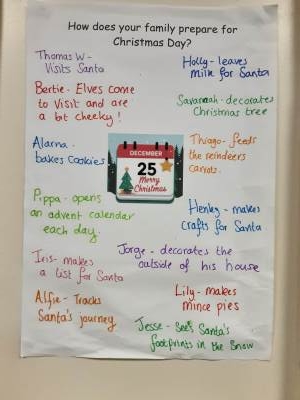 How does your family prepare for
Christmas Day?
Thomas W -
Visits Santa
Holly - leaves
milk for Santa
Bertie - Elves come
to visit and are
a bit cheeky!
Savannah - decorates
Christmas tree
Alarna -
bakes cookies
Thiago - feeds
the reindeers
carrots.
DECEMBER
25
Merry
Christmas
Pippa - opens
an advent calendar
each day.
Henley - makes
crafts for Santa
Jorge - decorates the
outside of his house
Iris - makes
a list for Santa
Alfie - Tracks
Santa's journey
Lily - makes
mince pies
Jesse - Sees Santa's
footprints in the snow